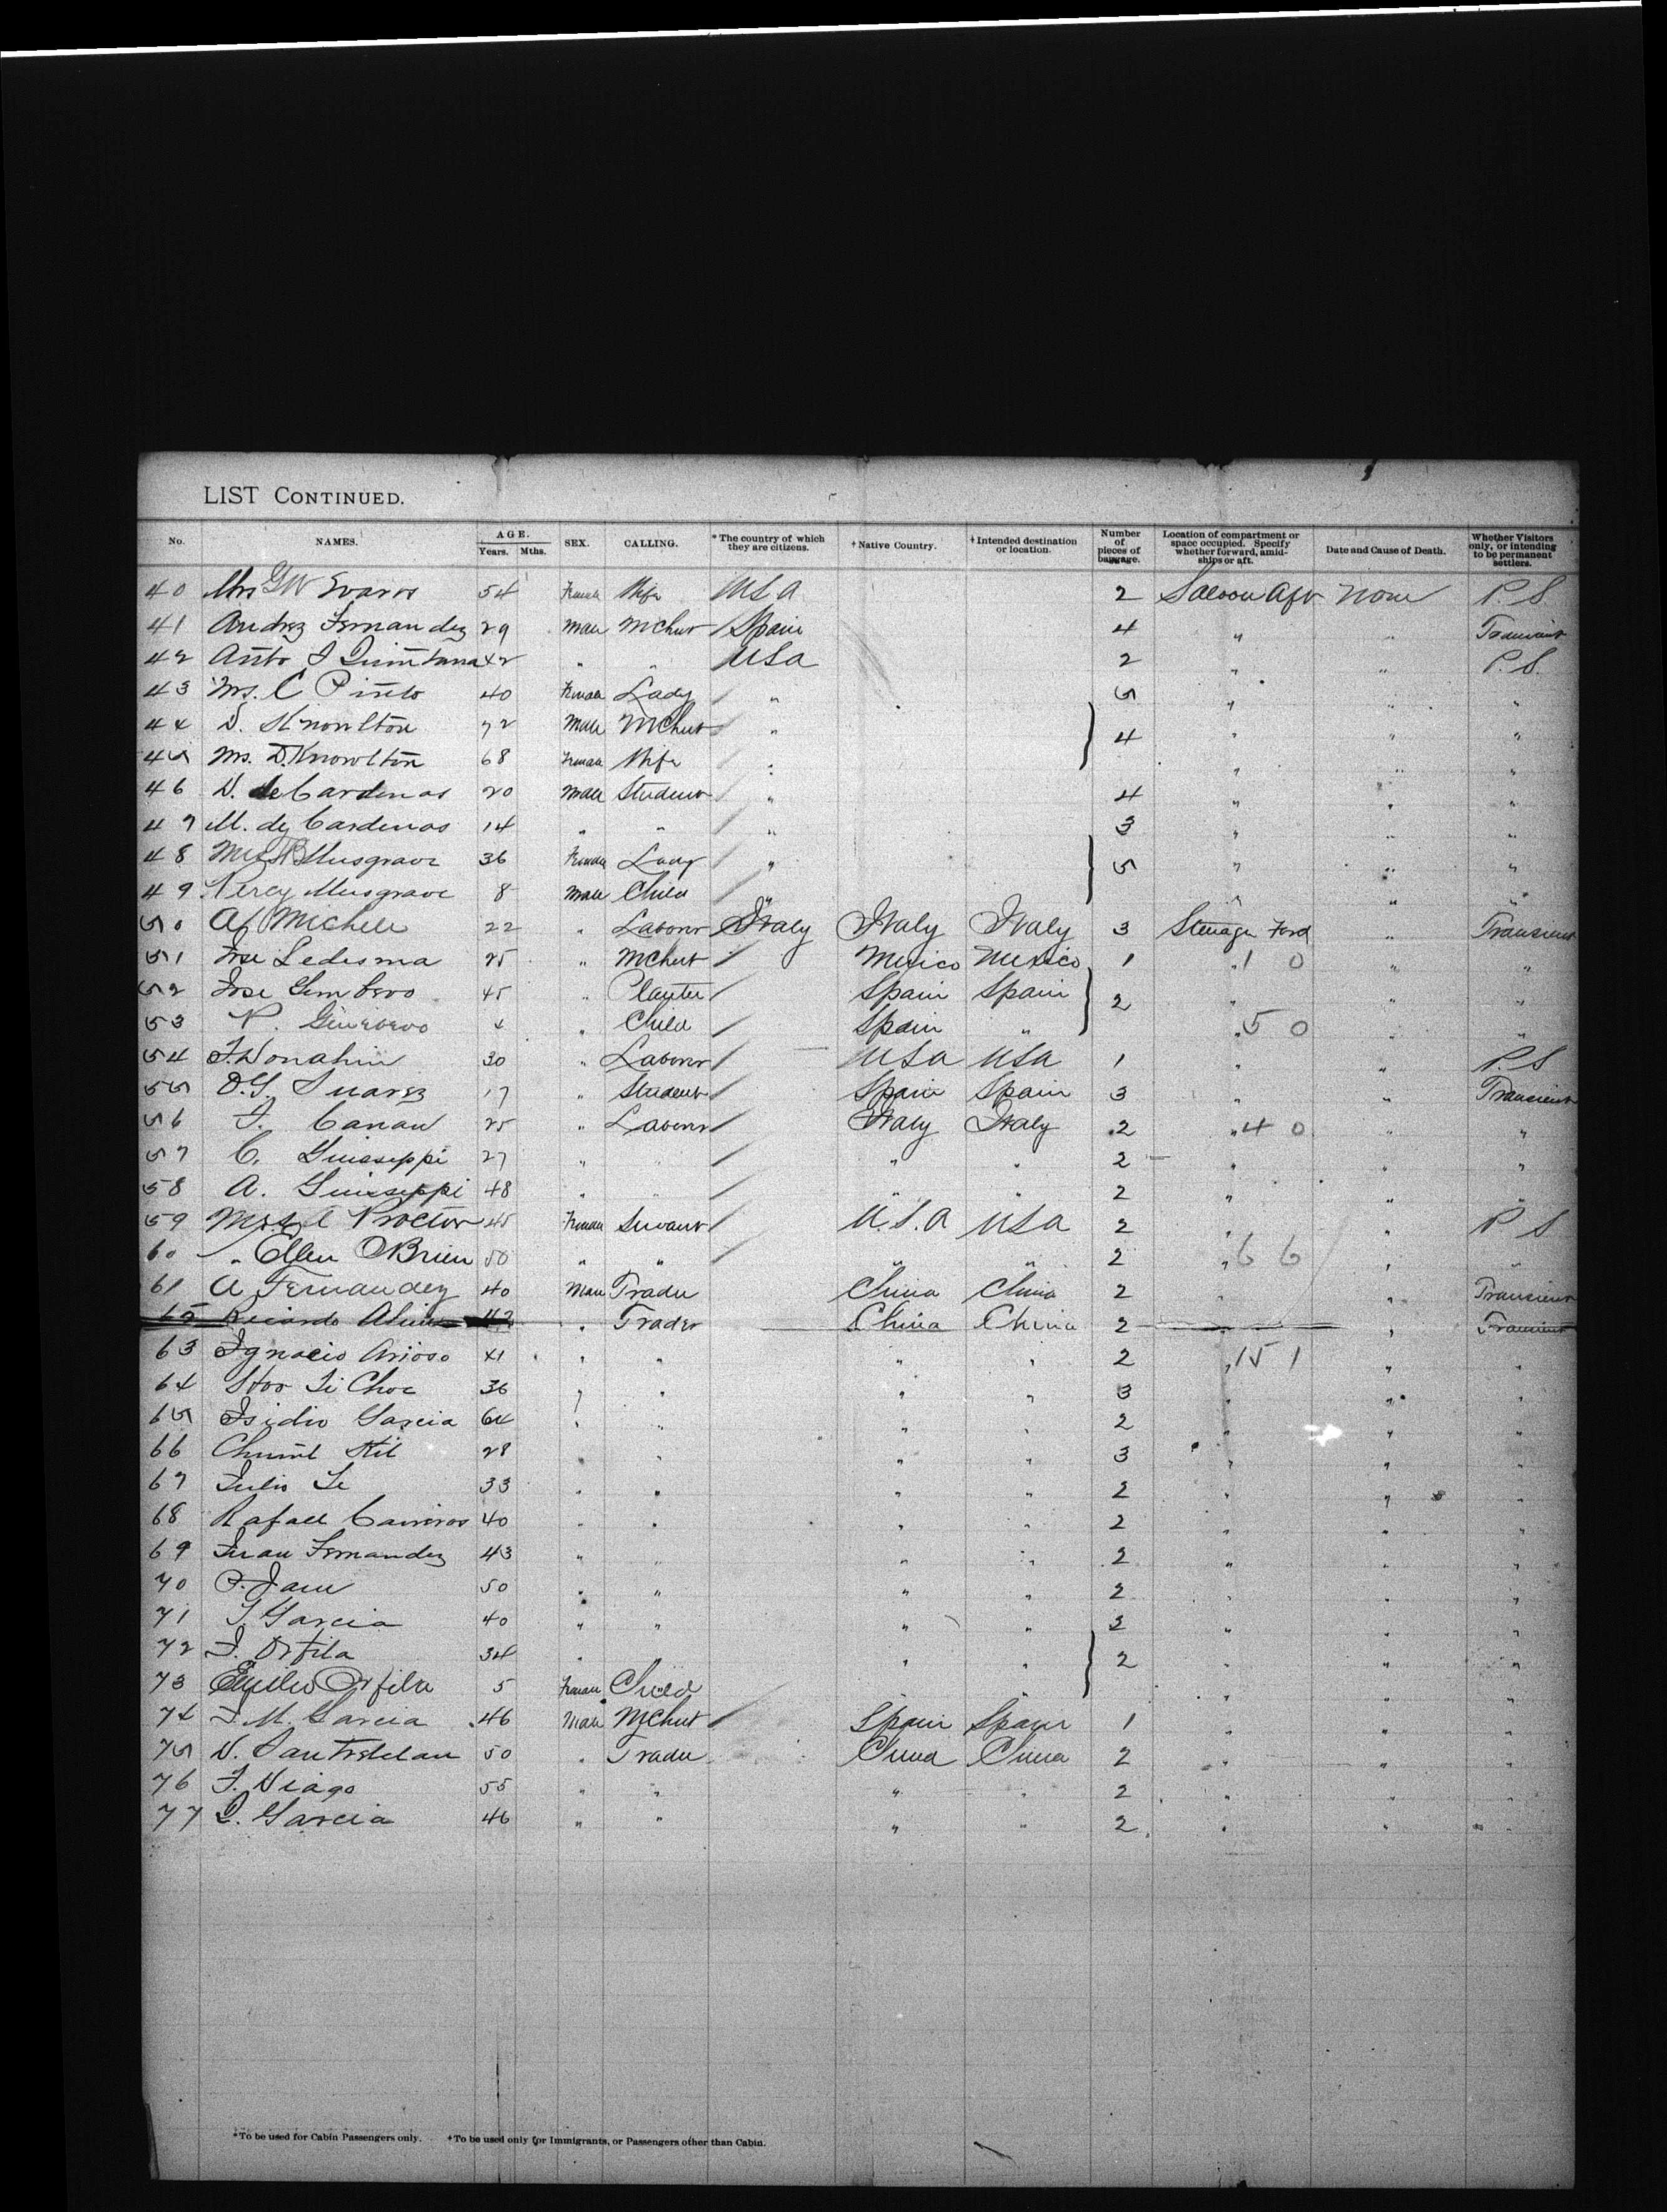 LIST CONTINUED.
No. NAMES. AGE. Years. Mths. SEX. CALLING. *The country of which they are citizens. †Native Country. †Intended destination or location. Number of pieces of baggage. Location of compartment or space occupied. Specify whether forward, amidships or aft. Date and Cause of Death. Whether Visitors only, or intending to be permanent settlers.
40 Mrs GW 54 Female Wife USA 2 Saloon Aft None P.S.
41 Andrez Fernandez 29 Male Mchnt Spain 4 " " Transient
42 Anto Quintana 42 " " USA 2 " " P.S.
43 Mrs. C Pinto 40 Female Lady " 5 " " "
44 D. Knowlton 72 Male Mchnt " 4 " " "
45 Mrs. D. Knowlton 68 Female Wife " " " "
46 D. de Cardenas 20 Male Student " 4 " " "
47 M. de Cardenas 14 " " " 3 " " "
48 Musgrave 36 Female Lady " 5 " " "
49 Percy Musgrave 8 Male Child " " " "
50 Michele 22 " Laborer Italy Italy Italy 3 Steerage Ford " Transient
51 Ledesma 25 " Mchnt Mexico Mexico 1 " 1 0 " "
52 Jose 45 " Planter Spain Spain 2 " " "
53 4 " Child Spain " " 5 0 "
54 Donahin 30 " Laborer USA USA 1 " " P.S
55 D.G. Suarez 17 " Student Spain Spain 3 " " Transient
56 Canan 25 " Laborer Italy Italy 2 " 4 0 " "
57 C. Guiseppi 27 " " " " 2 " " "
58 A. Guiseppi 48 " " " " 2 " " "
59 Proctor 45 Female Servant U.S.A USA 2 " " P S
60 " Ellen OBrien 50 " " " " 2 " 6 6 " "
61 A Fernandez 40 Male Trader China China 2 " " Transient
62 Ricardo 42 " Trader China China 2 " " Transient
63 Ignacio Arioso 41 " " " " 2 " 15 1 " "
64 36 " " " " 3 " " "
65 Isidro Garcia 64 " " " " 2 " " "
66 28 " " " " 3 " " "
67 Julio 33 " " " " 2 " " "
68 Rafael 40 " " " " 2 " " "
69 Juan Fernandez 43 " " " " 2 " " "
70 50 " " " " 2 " " "
71 Garcia 40 " " " " 2 " " "
72 Orfila 34 " " " 2 " " "
73 Orfila 5 Female Child " " "
74 M. Garcia 46 Male Mchnt Spain Spain 1 " " "
75 50 " Trader China China 2 " " "
76 Diago 55 " " " " 2 " " "
77 Garcia 46 " " " " 2 " " "
*To be used for Cabin Passengers only. †To be used only for Immigrants, or Passengers other than Cabin.